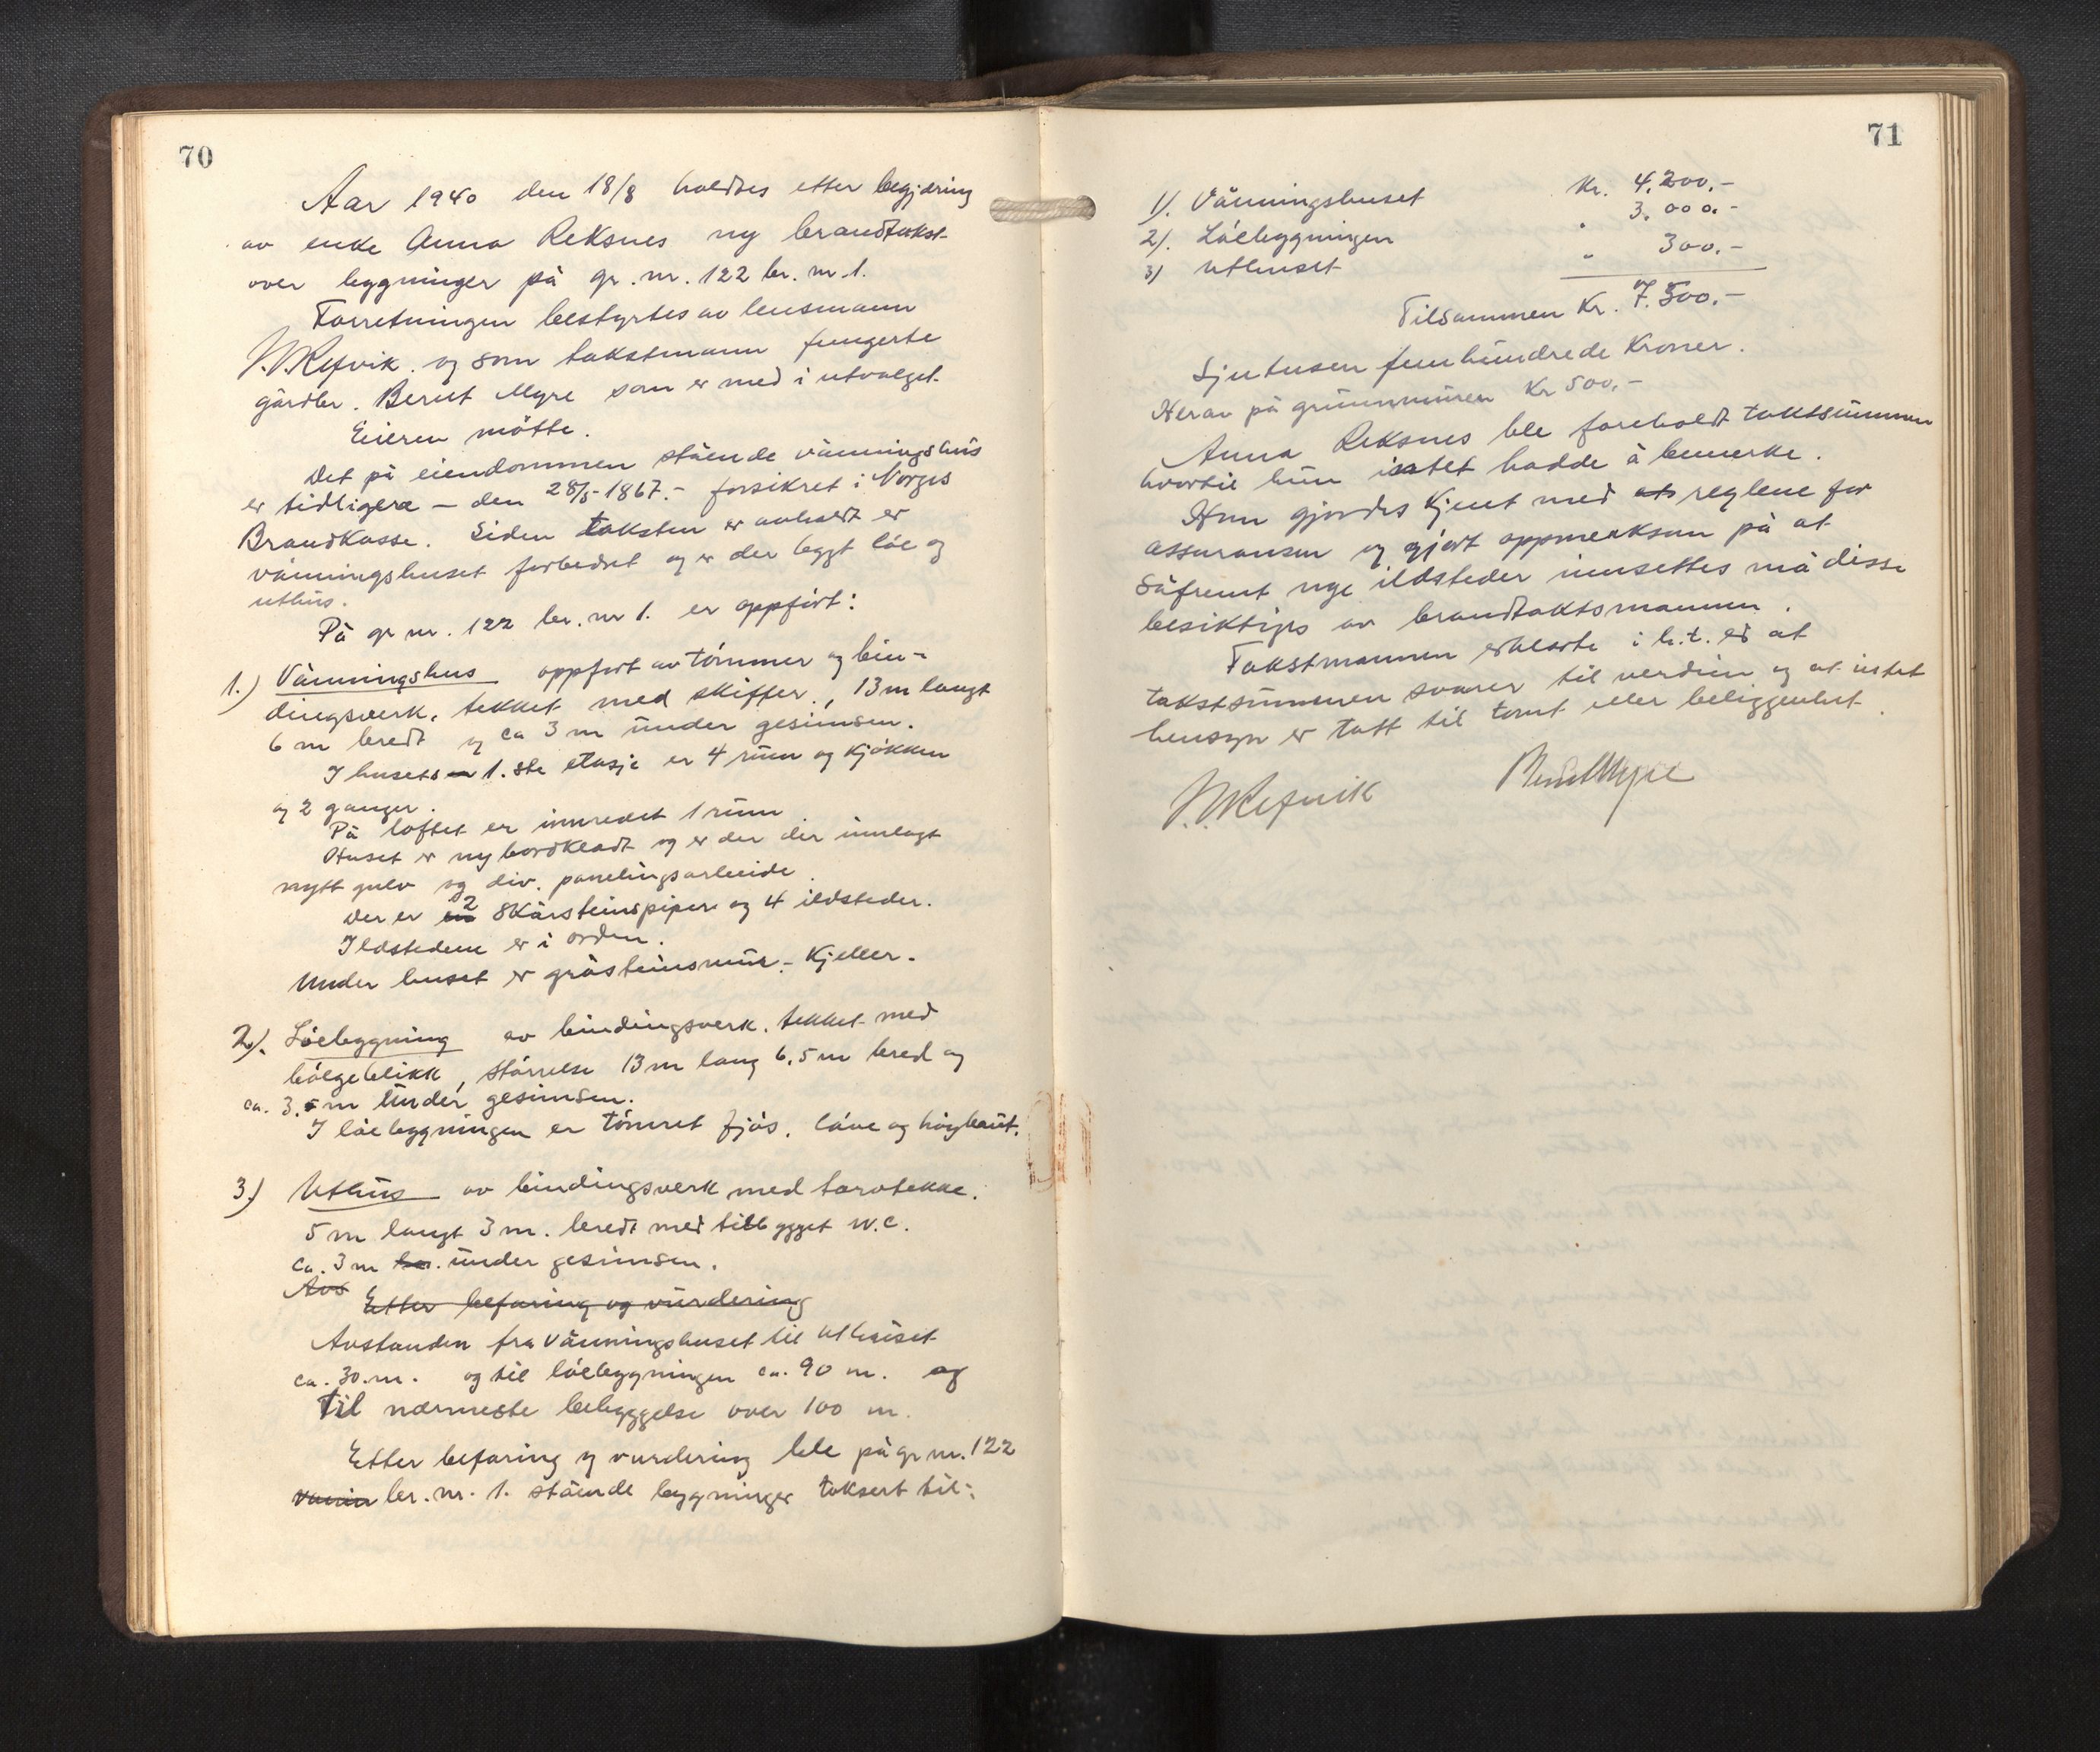 70
Aar 1940 den 18/8 holdtes etter begjæring
av enke Anna Reksnes ny brandtakst
over bygninger på gr. nr. 122 br. nr. 1.
Forretningen bestyrtes av lensmann
Refvik. og som takstmann fungerte
gårdbr. Bernt Myre som er med i utvalget.
Eieren mötte.
Det på eiendommen stående våningshus
er tidligere – den 28/5-1867.- forsikret i Norges
Brandkasse. Siden taksten er avholdt er
våningshuset forbedret og er der bygt löe og
uthus.
På gr nr. 122 br. nr 1. er oppfört:
1.) Våningshus oppfört av tömmer og bin-
dingsverk, tekket med skiffer, 13 m langt
6 m bredt og ca 3 m under gesimsen.
I husets 1. ste etasje er 4 rum og kjökken
og 2 ganger.
På loftet er innredet 1 rum
Huset er ny bordkledt og er der der innlagt
nytt gulv og div. panelingsarbeide.
Der er 2 skårsteinspiper og 4 ildsteder.
Ildstedene er i orden.
Under huset er gråsteinsmur.- Kjeller.
2). Löebygning av bindingsverk, tekket med
bölgeblikk, störrelse 13 m lang 6,5 m bred og
ca. 3.5 m under gesimsen.
I löebygningen er tömret fjös, låve og höybaut.
3.) Uthus av bindingsverk med torvtekke.
5 m langt 3 m. bredt med tilbygget W.C.
ca. 3 m br. under gesimsen.
Avs
Etter befaring og vurdering
Avstanden fra våningshuset til uthuset
ca. 30. m. og til löebygningen ca. 90 m. og
til nærmeste bebyggelse over 100 m.
Etter befaring og vurdering ble på gr nr. 122
vånin br. nr. 1. stående bygninger taksert til:
71
1). Våningshuset Kr. 4.200.-
2). Löebygningen " 3.000.-
3) Uthuset " 300.-
Tilsammen Kr. 7.500.-
Sjutusen femhundrede Kroner.
Herav på grunnmuren Kr 500.-
Anna Reksnes ble foreholdt takstsummen
hvortil hun intet hadde å bemerke.
Hun gjordes kjent med ats reglene for
assuransen og gjort oppmerksom på at
såfremt nye ildsteder innsettes må disse
besiktiges av brandtakstsmannen.
Takstmannen erklærte i h.t. ed at
takstsummen svarer til verdien og at intet
hensyn er tatt til tomt eller beliggenhet.
Refvik Bernt Myre